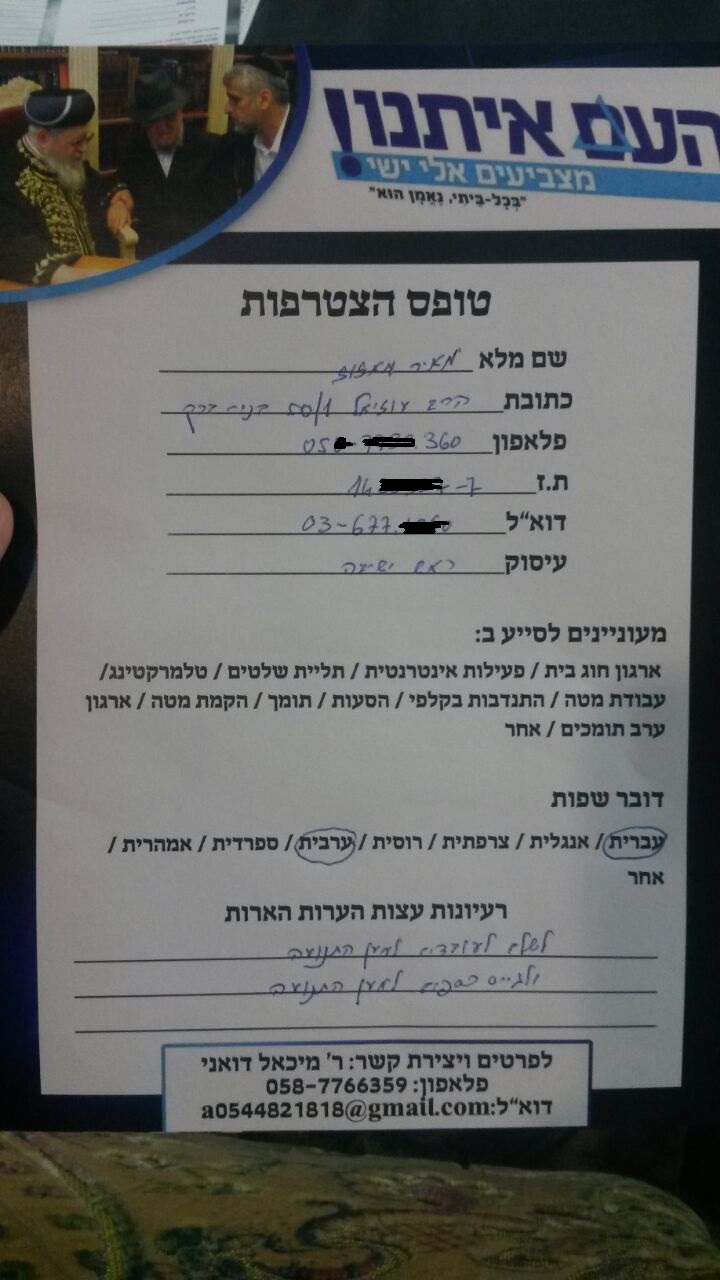 העם איתנו!
מצביעים אלי ישי
"בְּכָל-בֵּיתִי, נֶאֱמָן הוּא"
טופס הצטרפות
שם מלא מאיר מאזוז
כתובת הרב עוזיאל 50/1 בני ברק
פלאפון 360
ת.ז 7-
דוא"ל 03-677
עיסוק ראש ישיבה
מעוניינים לסייע ב:
ארגון חוג בית / פעילות אינטרנטית / תליית שלטים / טלמרקטינג/
עבודת מטה / התנדבות בקלפי / הסעות / תומך / הקמת מטה / ארגון
ערב תומכים / אחר
דובר שפות
עברית / אנגלית / צרפתית / רוסית / ערבית / ספרדית / אמהרית /
אחר
רעיונות עצות הערות הארות
לשלם לעובדים למען התנועה
ולגייס כספים למען התנועה
לפרטים ויצירת קשר: ר' מיכאל דואני
פלאפון: 058-7766359
דוא"ל:a0544821818@gmail.com